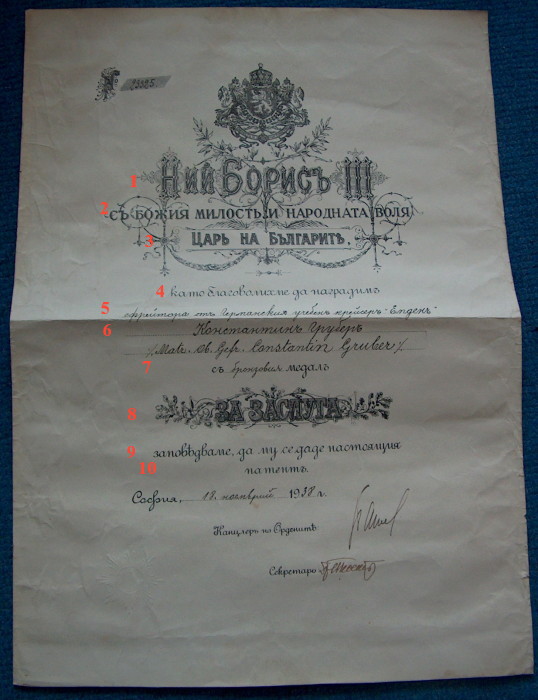 23025
1 Ний Борисъ III
2 съ Божия милость и народната воля
3 Царь на Българитѣ,
4 като благоволихме да наградимъ
5 ефрейтора отъ Германския учебенъ крайсеръ "Емденъ"
6 Константинъ Груберъ
/Matr. Ob. Gefr. Constantin Gruber/
7 съ бронзовия медалъ
8 За заслуга
9 заповѣдваме, да му се даде настоящия
10 патентъ.
София, 18. ноемврий 1938 г.
Канцлеръ по Орденитѣ
Секретарь